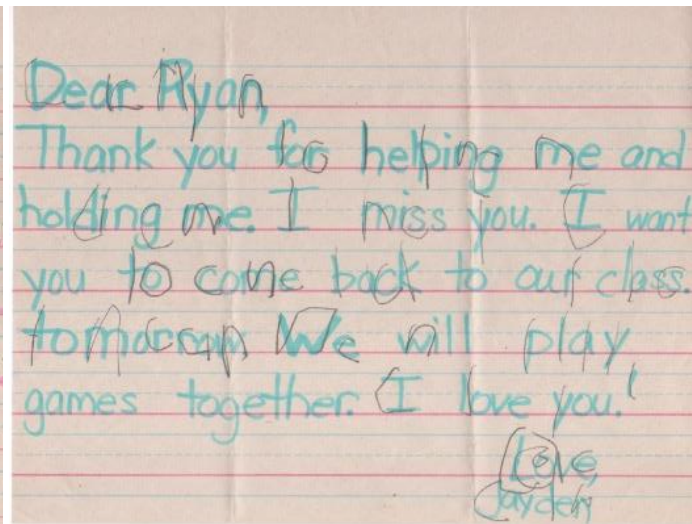 Dear Ryan,
Thank you for helping me and
holding me. I miss you. I want
you to come back to our class.
tomorrow. We will play
games together. I love you!
Love,
Jayden